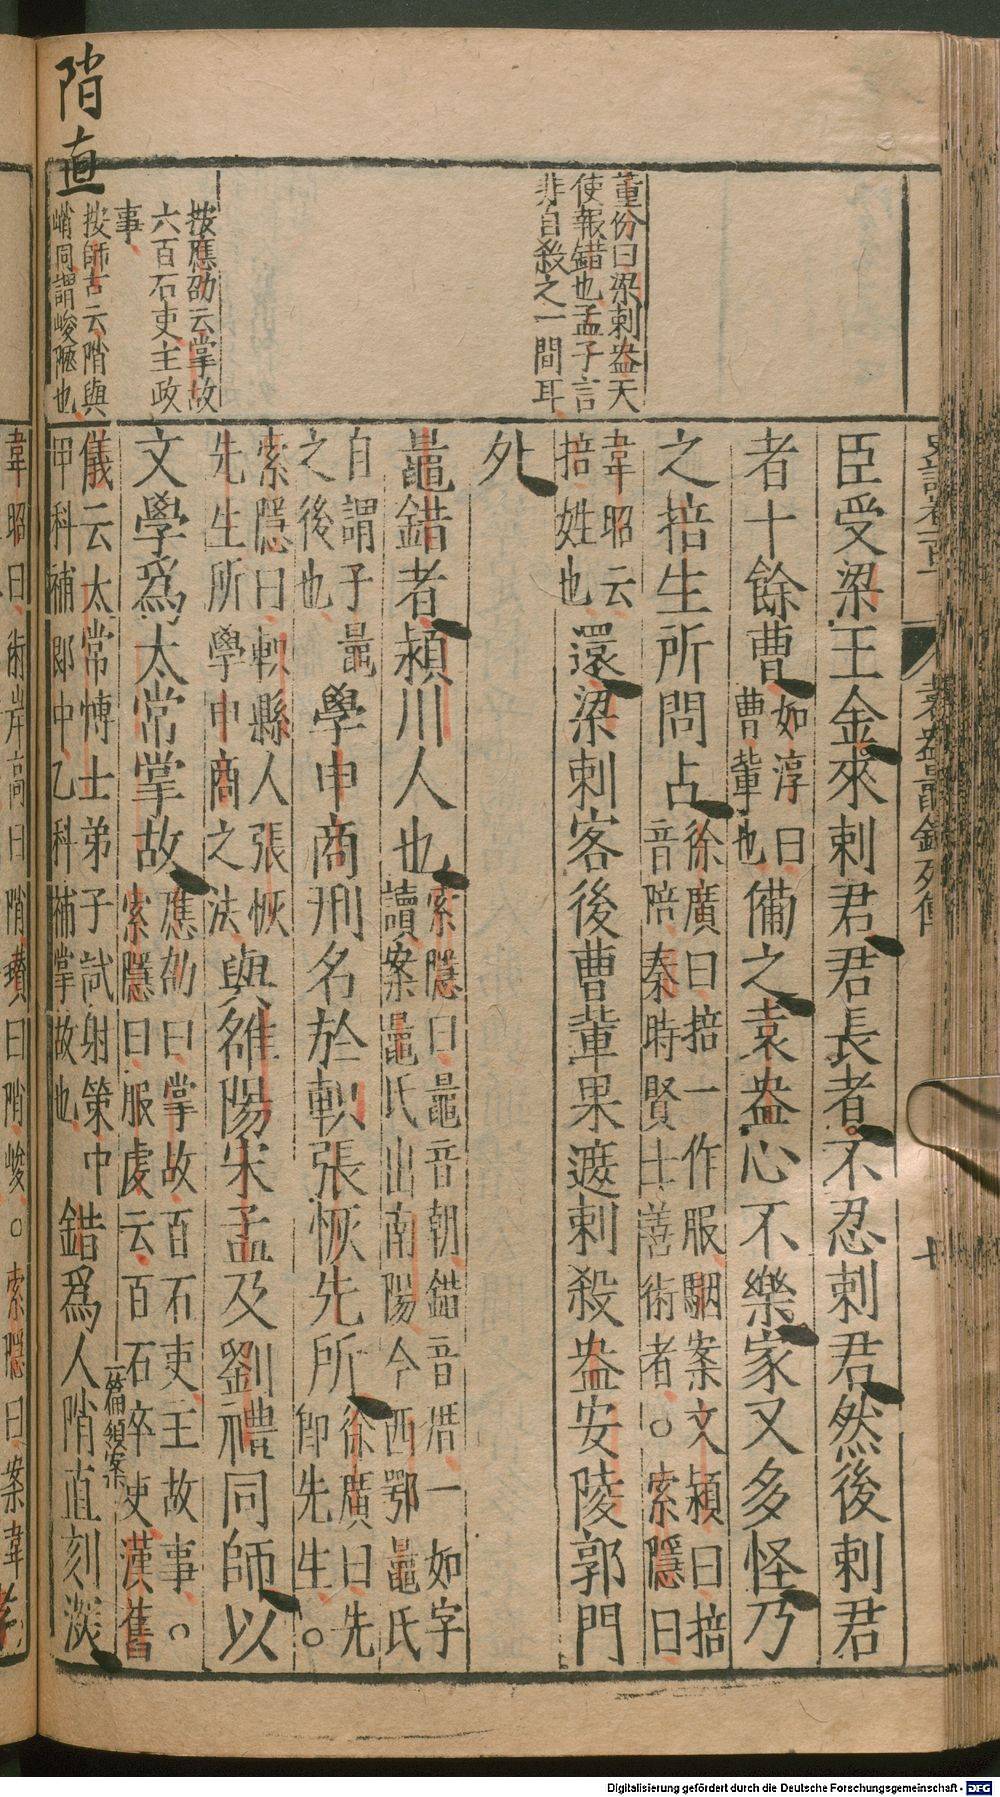 陗直
董份曰梁刺盎天
使報錯也孟子言
非自殺之一間耳
按應劭云掌故
六百石吏主政
事
按師古云陗與
峭同謂峻陿也
袁盎鼂錯列傳
臣受梁王金來刺君君長者不忍刺君然後刺君
者十餘曹如淳曰曹輩也備之袁盎心不樂家又多怪乃
之掊生所問占徐廣曰掊一作服駰案文穎曰掊音陪秦時賢士善術者○索隱曰
韋昭云掊姓也還梁刺客後曹輩果遮刺殺盎安陵郭門
外
鼂錯者潁川人也索隱曰鼂音朝錯音厝一如字讀案鼂氏出南陽今西鄂鼂氏
自謂子鼂之後也學申商刑名於軹張恢先所徐廣曰先即先生○
索隱曰軹縣人張恢先生所學申商之法與雒陽宋孟及劉禮同師以
文學爲太常掌故應劭曰掌故百石吏主故事○索隱曰服虔云百石卒吏漢舊
儀云太常博士弟子試射策中甲科補郎中乙科補掌故也錯爲人陗直刻深
韋昭曰術岸高曰陗瓚曰陗峻○索隱曰案韋
Digitalisierung gefördert durch die Deutsche Forschungsgemeinschaft - DFG